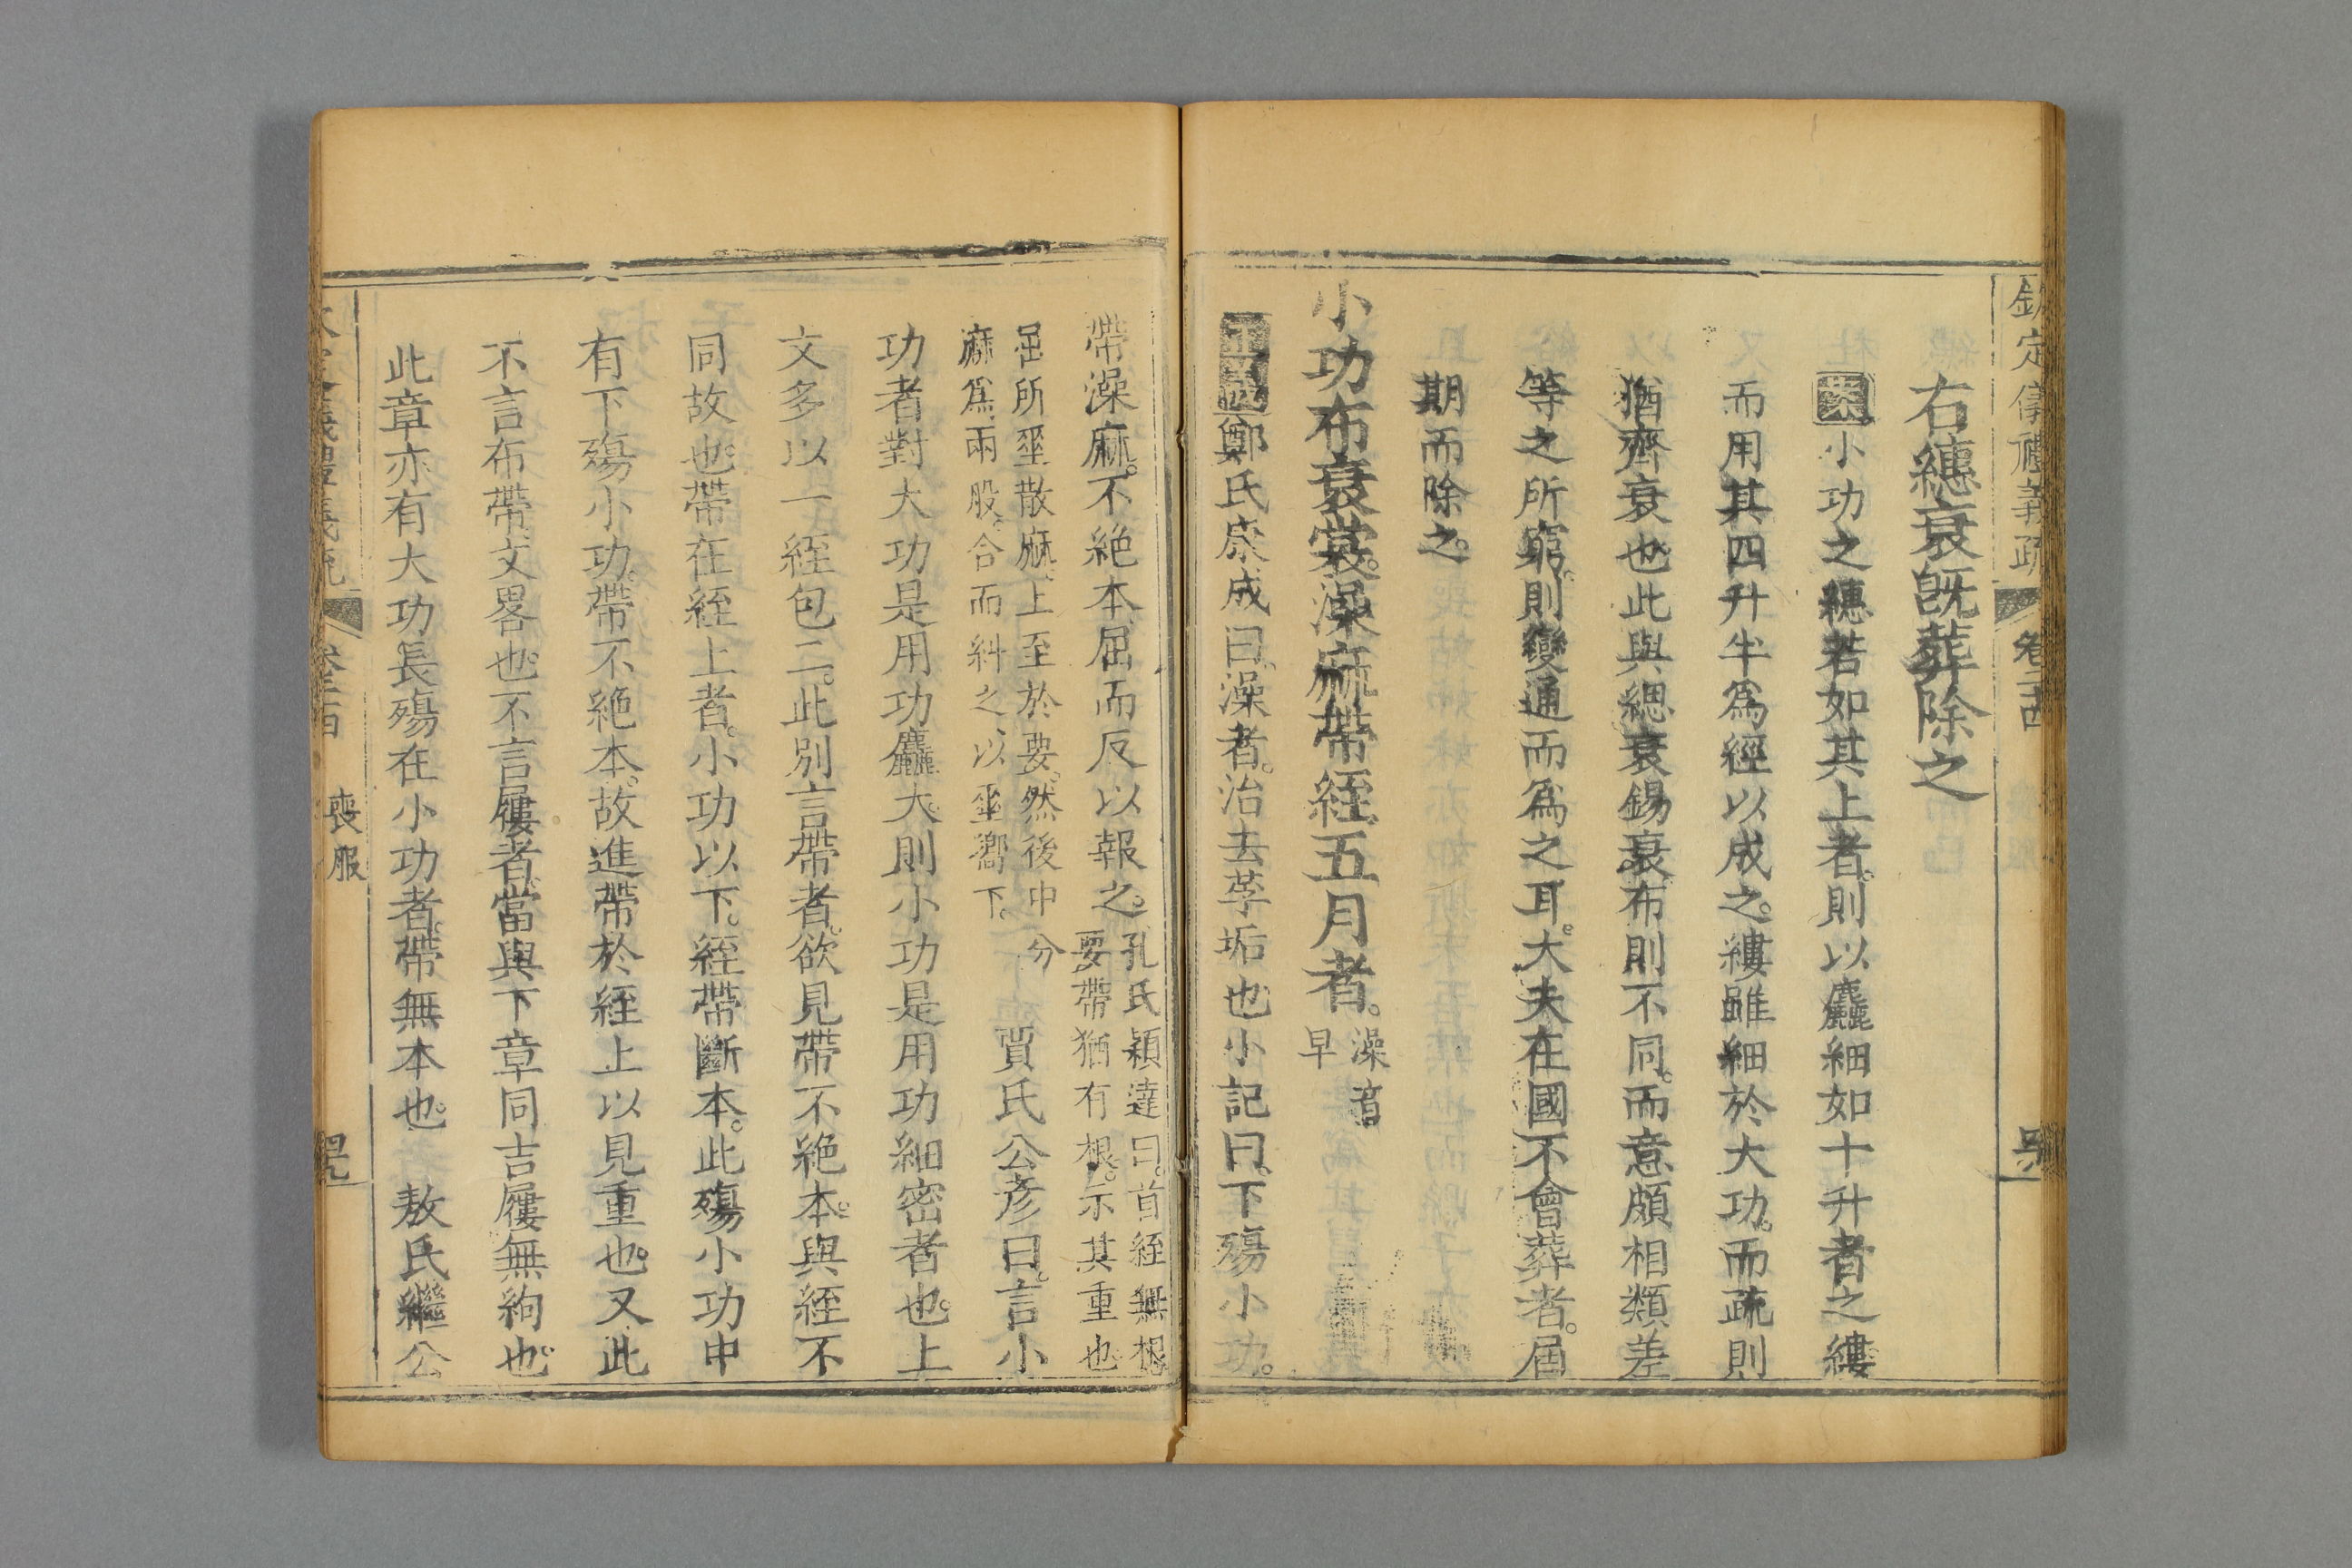 欽定儀禮義疏 卷二十四
右繐衰既葬除之
案小功之繐若如其上者則以麤細如十升者之縷
而用其四升半爲經以成之縷雖細於大功而疏則
猶齊衰也此與緦衰錫衰布則不同而意頗相類差
等之所窮則變通而爲之耳大夫在國不會葬者屆
期而除之
小功布衰裳澡麻帶絰五月者澡音
早
正義鄭氏康成曰澡者治去莩垢也小記曰下殤小功
帶澡麻不絕本屈而反以報之孔氏穎達曰首絰無根
要帶猶有根示其重也
屈所垂散麻上至於要然後中分
麻爲兩股合而糾之以垂嚮下
賈氏公彥曰言小
功者對大功是用功麤大則小功是用功細密者也上
文多以一絰包二此別言帶者欲見帶不絕本與絰不
同故也帶在絰上者小功以下絰帶斷本此殤小功中
有下殤小功帶不絕本故進帶於絰上以見重也又此
不言布帶文畧也不言屨者當與下章同吉屨無絇也
此章亦有大功長殤在小功者帶無本也 敖氏繼公
儀禮義疏 喪服